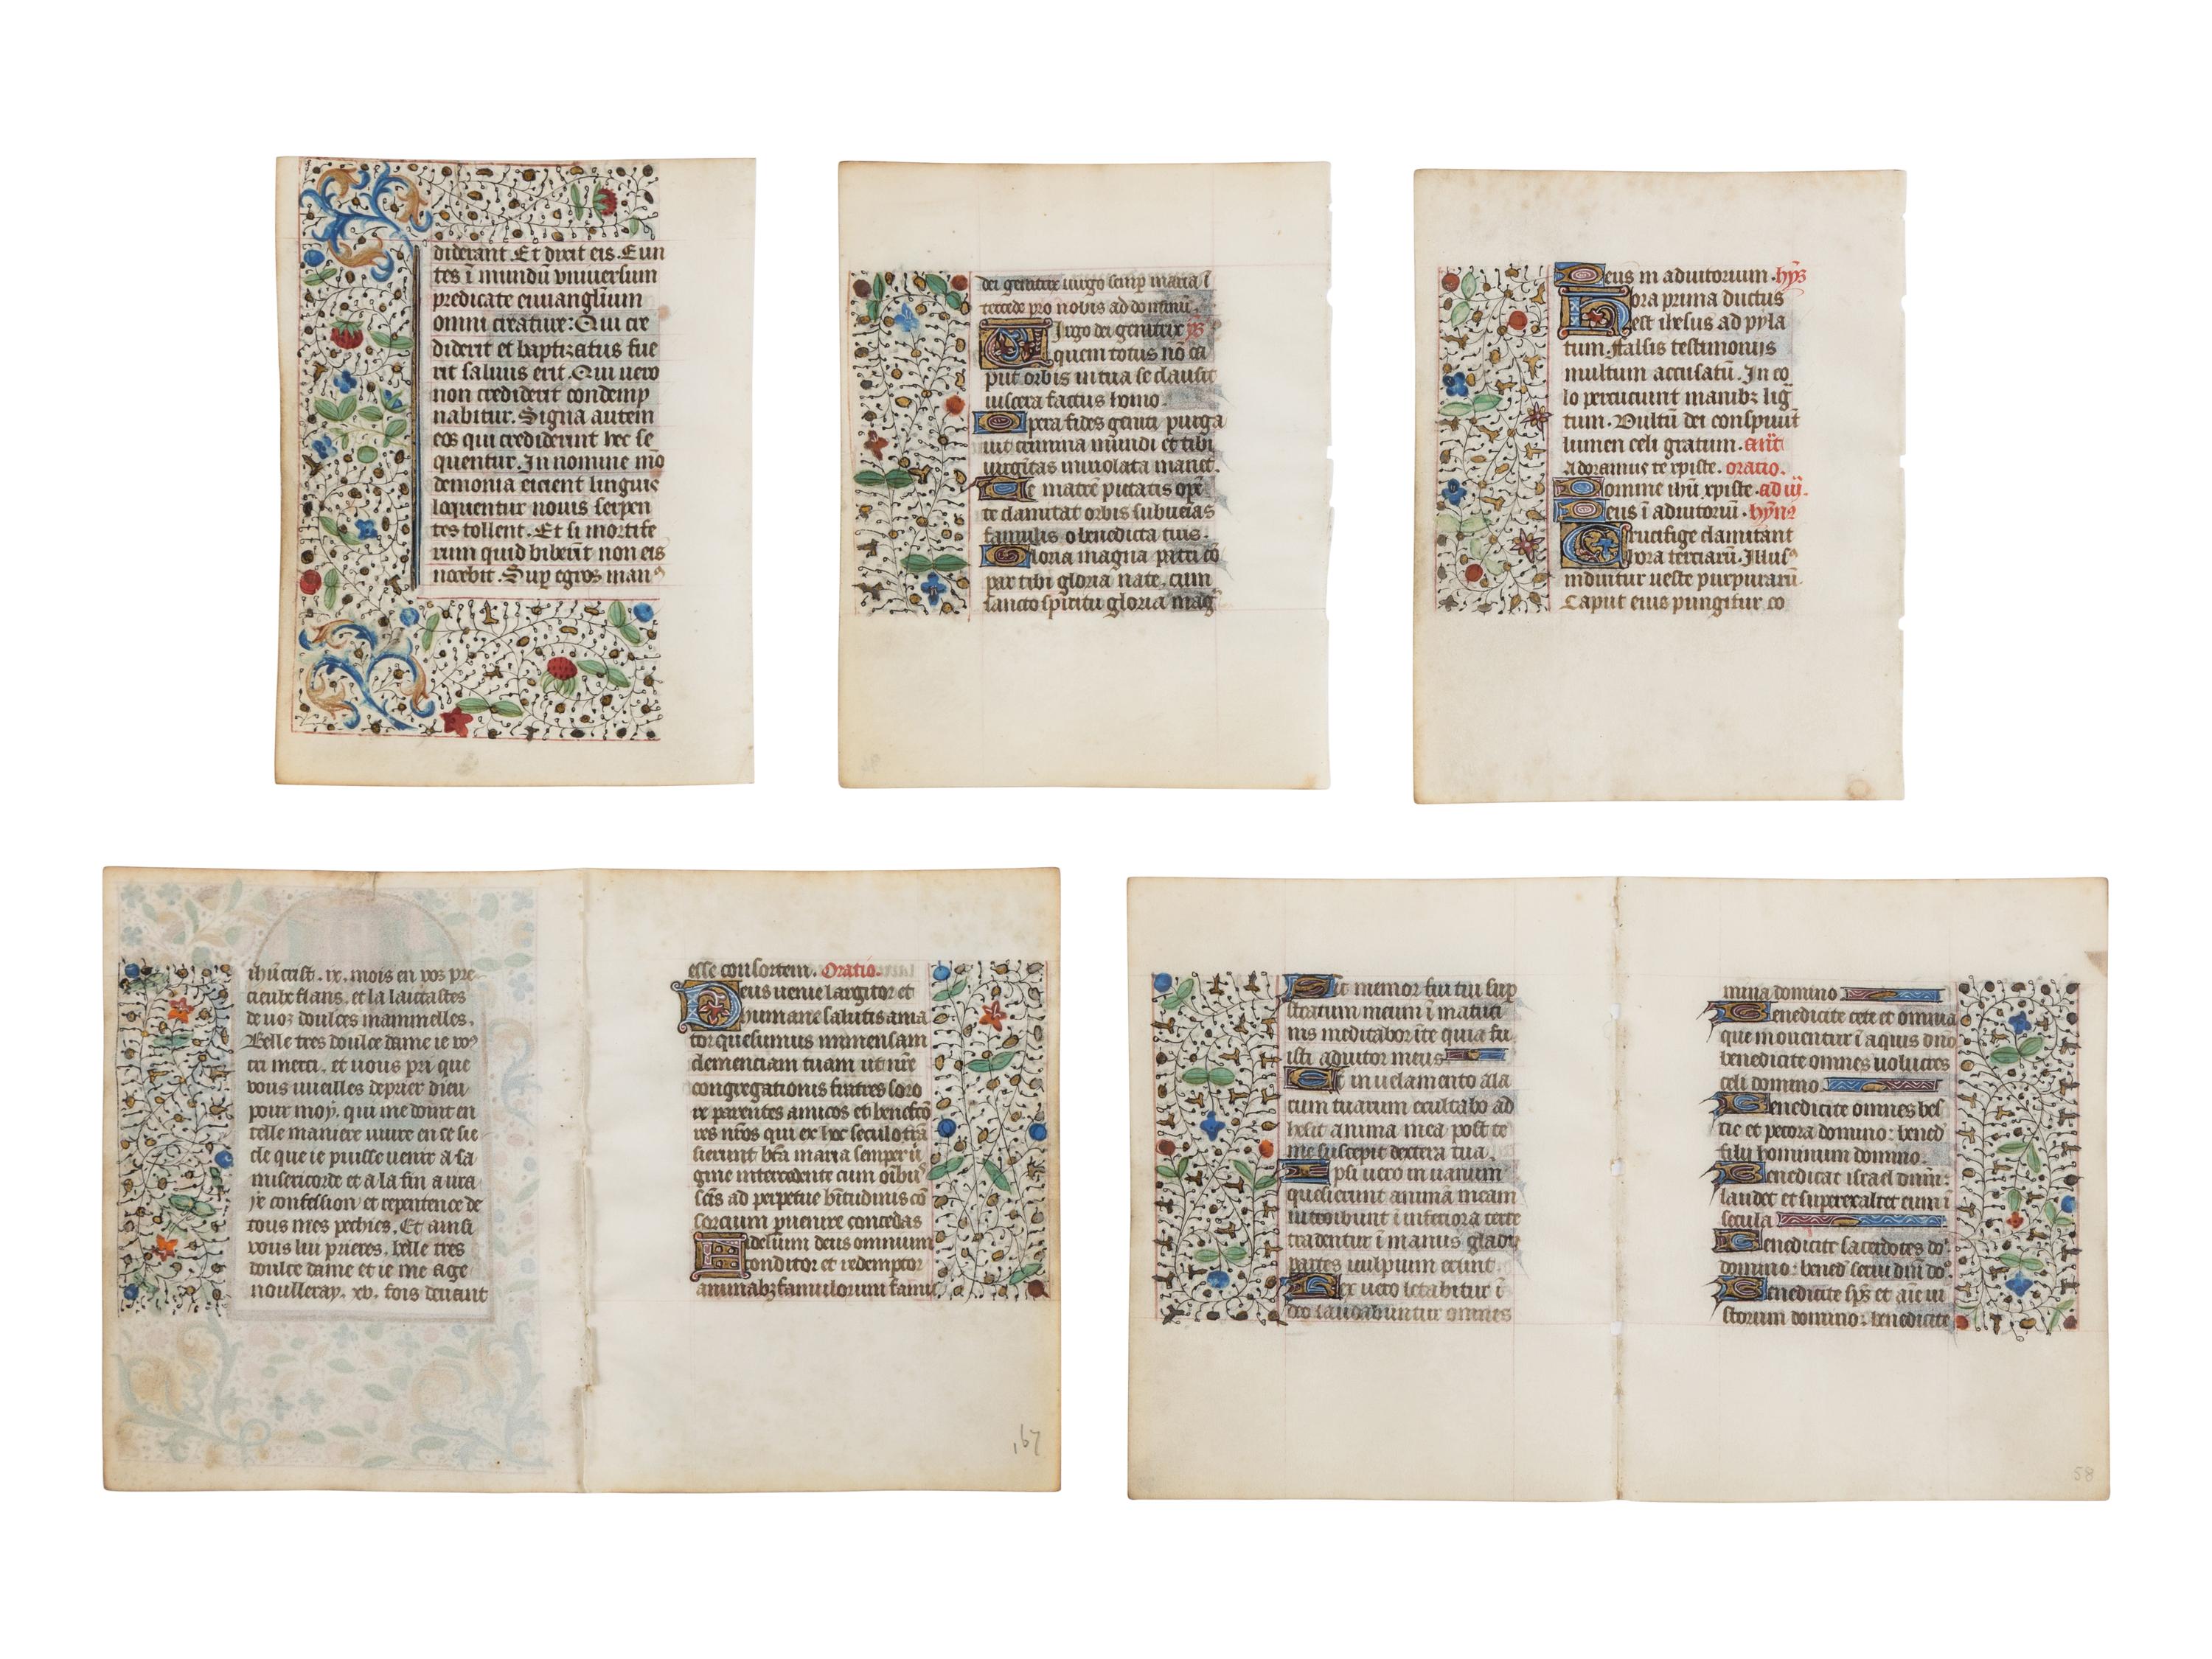 diderant. Et dixit eis. Eun
tes ī mundū vniuersum
predicate euuanglium
omni creature: Qui cre
diderit et baptizatus fue
rit saluus erit. Qui uero
non crediderit condemp
nabitur. Signa autem
eos qui crediderint hec se
quentur. In nomine mō
demonia eicient linguis
loquentur nouis serpen
tes tollent. Et si mortife
rum quid biberīt non eis
nocebit. Sup egros manꝰ
dei genitrix uirgo semp maria ī
tercede pro nobis ad dominū
Uirgo dei genitrix p̄s
quem totus nō ca
pit orbis in tua se clausit
uiscera factus homo.
Uera fides geniti purga
uit crimina mundi et tibi
uirgitas inuiolata manet.
Te matrē pietatis opē
te clamitat orbis subueias
famulis o benedicta tuis.
Gloria magna patri cō
par tibi gloria nate, cum
sancto spiritu gloria mag
Deus in adiutorium. hȳs
Hora prima ductus
est ihesus ad pyla
tum. falsis testimoniis
multum accusatū. In co
lo percuciunt manibꝫ lig
tum. Vultū dei conspuūt
lumen celi gratum. ant
Adoramus te xpiste. oratio.
Domine ihū xpiste. ad iii.
Deus ī adiutoriū. hȳnꝰ
Crucifige clamitant
hora terciarū. Illusꝰ
induitur ueste purpurarū.
Caput eius pungitur co
ihūcrist. ix. mois en voz pre
cieulx flans, et la laictastes
de uoz doulces mammelles.
Belle tres doulce dame ie voꝰ
cri merci. et uous pri que
vous uueilles deprier dieu
pour moy, qui me doint en
telle maniere uiure en se sie
cle que ie puisse uenir a sa
misericorde et a la fin a ura
ye confession et repentence de
tous mes pechies. Et ainsi
vous lui prieres. belle tres
doulce dame et ie me age
noulleray. xv. fois deuant
esse consortem. Oratio.
Deus uenie largitor et
humane salutis ama
tor quesumus immensam
clemenciam tuam ut nr̄e
congregationis fratres soro
re parentes amicos et benefco
res nr̄os qui ex hoc seculo trā
sierunt bt̄a maria semper ū
gine intercedente cum oībuꝰ
scīs ad perpetue bītudinis cō
sorcium puenire concedas
Fidelium deus omnium
conditor et redemptor
animabꝫ famulorum famu
167
Sic memor fui tui sup
stratum meum ī matuti
nis meditabor īte quia fu
isti adiutor meus
Et in uelamento ala
rum tuarum exultabo ad
hesit anima mea post te
me suscepit dextera tua
Ipsi uero in uanum
quesierunt animā meam
introibunt ī inferiora terre
tradentur ī manus gladii
partes uulpium erunt.
Rex uero letabitur ī
deo laudabuntur omnes
mina domino
Benedicite cete et omnia
que mouentur ī aquis dn̄o
benedicite omnes uolucres
celi domino
Benedicite omnes bes
tie et pecora domino: bened
filii hominum domino.
Benedicat israel dnm̄:
laudet et superexaltet eum ī
secula
Benedicite sacerdotes do
domino: bened serui dnī do
Benedicite sps̄ et aīe iu
storum domino: benedicite
58